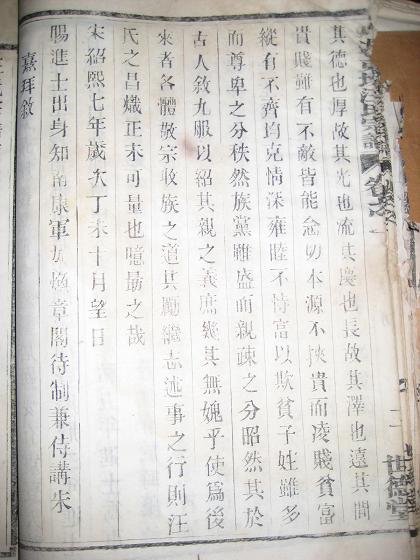 其德也厚故其光也流其慶也長故其澤也遠其間
貴賤雖有不敵皆能念切本源不挾貴而凌賤貧富
縱有不齊均克情深雍睦不恃富以欺貧子姓雖多
而尊卑之分秩然族黨雖盛而親疎之分昭然其於
古人敘九服以紹其親之義庶幾其無媿乎使爲後
來者各體敬宗收族之道其勵繼志述事之行則汪
氏之昌熾正未可量也噫勗之哉
宋紹熙七年歲次丁未十月望日
賜進士出身知南康軍加煥章閣待制兼侍講朱
熹拜敘
世德堂